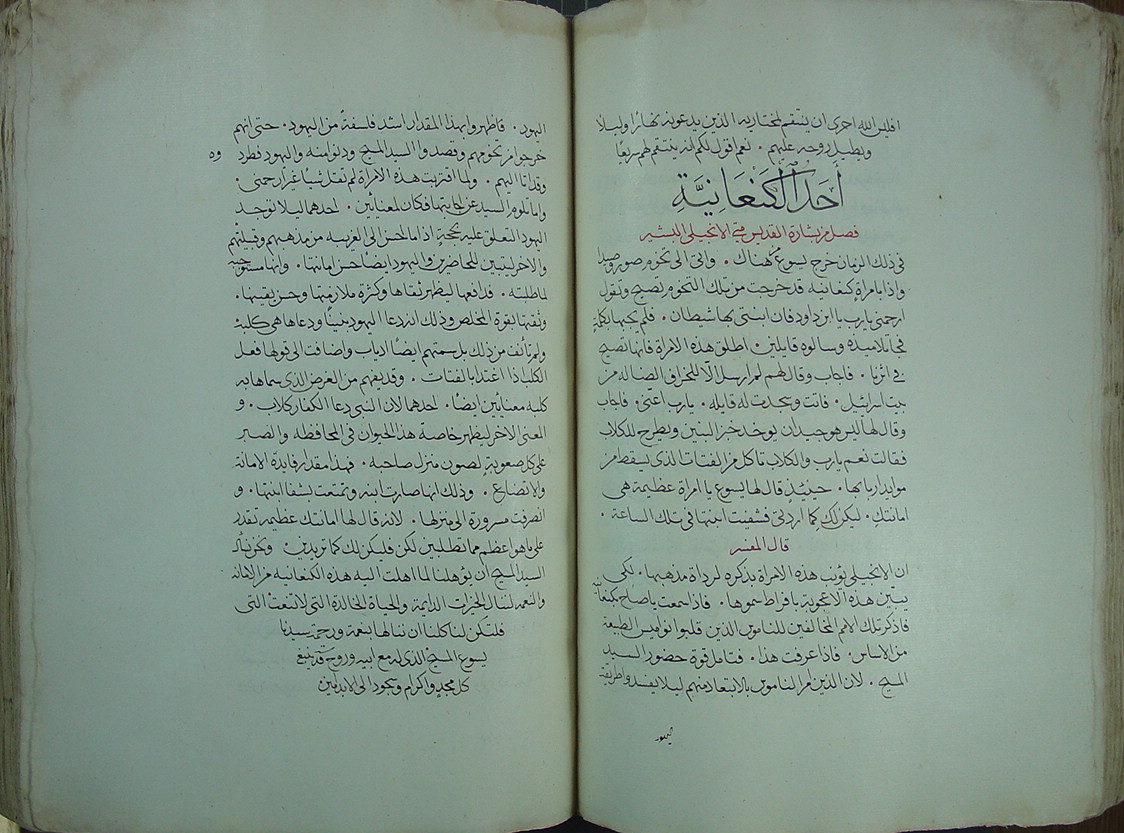 افليس الله احرى ان ينتقم لمختاريه الذين يدعونه نهارًا وليلًا
ويطيل روحه عليهم . نعم اقول لكم انه ينتقم لهم سريعًا
أحد الكنعانية
فصل من بشارة القديس متي الانجيلي البشير
في ذلك الزمان خرج يسوع من هناك . واتى الى تخوم صور وصيدا
واذا بامراة كنعانيه قد خرجت من تلك التخوم تصيح وتقول
ارحمني يارب يا ابن داود فان ابنتي بها شيطان . فلم يجبها بكلمة
فجا تلاميذه وسالوه قايلين . اطلق هذه الامراة فانها تصيح
في اثرنا . فاجاب وقال لهم لم ارسل الّا للخراف الضاله من
بيت اسرائيل . فاتت وسجدت له قايله . يارب اعنّي . فاجاب
وقال لها ليس هو جيد ان يوخد خبز البنين ويطرح للكلاب
فقالت نعم يارب والكلاب تاكل من الفتات الذي يسقط من
موايد اربابها . حينيذٍ قال لها يسوع يا امراة عظيمة هي
امانتكِ . ليكن لكِ كما اردتي فشفيت ابنتها في تلك الساعة .
قال المفسر
ان الانجيلي يؤنب هذه الامراة بذكره لرداة مذهبها . لكي
يبين هذه الاعجوبة بافراط سموها . فاذا سمعت يا صاح بكنعانية
فاذكر تلك الامم المخالفين للناموس الذين قلبوا نواميس الطبيعة
من الاساس . فاذا عرفت هذا . فتامل قوة حضور السيد
المسيح . لان الذين امر الناموس بالابتعاد منهم ليلا يفسدوا طريقة
اليهود
اليهود . فاظهروا بهذا المقدار اشد فلسفةً من اليهود . حتى انهم
خرجوا من تخومهم وقصدوا السيد المسيح ودنوا منه واليهود فطردوه
وقد اتا اليهم . ولما اقتربت هذه الامراة لم تقل شيًا غير ارحمني
واما تلوم السيد عن اجابتها فكان لمعنائين . احدهما ليلا توجد
اليهود التعلق عليه بحجة اذا ما احسن الى الغريبه من مذهبهم وقبيلتهم
والاخر ليتبين للحاضرين واليهود ايضًا حسن امانتها . وانها مستوجبه
لما طلبته . فدافعها ليظهر ثقاها وكثرة ملازمتها وحسن يقينها .
وثقتها بقوة المخلص وذلك انه دعا اليهود بنينًا ودعاها هي كلبة
ولم تانف من ذلك بل سمتهم ايضًا ارباب واضافت الى قولها فعل
الكلب اذا اغتدا بالفتات . وقد يفهم من الغرض الذي سماها به
كلبه معنائين ايضًا . احدهما لان النبي دعا الكفار كلاب . و
المعنى الاخر ليظهر خاصة هذا الحيوان في المحافظه والصبر
على كل صعوبةٍ لصون منزل صاحبه . فهذا مقدار فايدة الامانه
والاتضاع . وذلك انها صارت ابنه وتمتعت بشفا ابنتها . و
انصرفت مسرورة الى منزلها . لانه قال لها امانتك عظيمة تقتدر
على ما هو اعظم مما تطلبين لكن فليكن لك كما تريدين . ونحن نسال
السيد المسيح ان يؤهلنا لما اهلت اليه هذه الكنعانيه من الامانه
والنعمه لننال الخيرات الدايمة والحياة الخالدة التي لا تنعت التي
فلتكن لنا كلنا ان ننالها بنعمة ورحمة سيدنا
يسوع المسيح الذي له مع ابيه وروح قدسه ينبغي
كل مجدٍ واكرام وسجود الى الابد امين